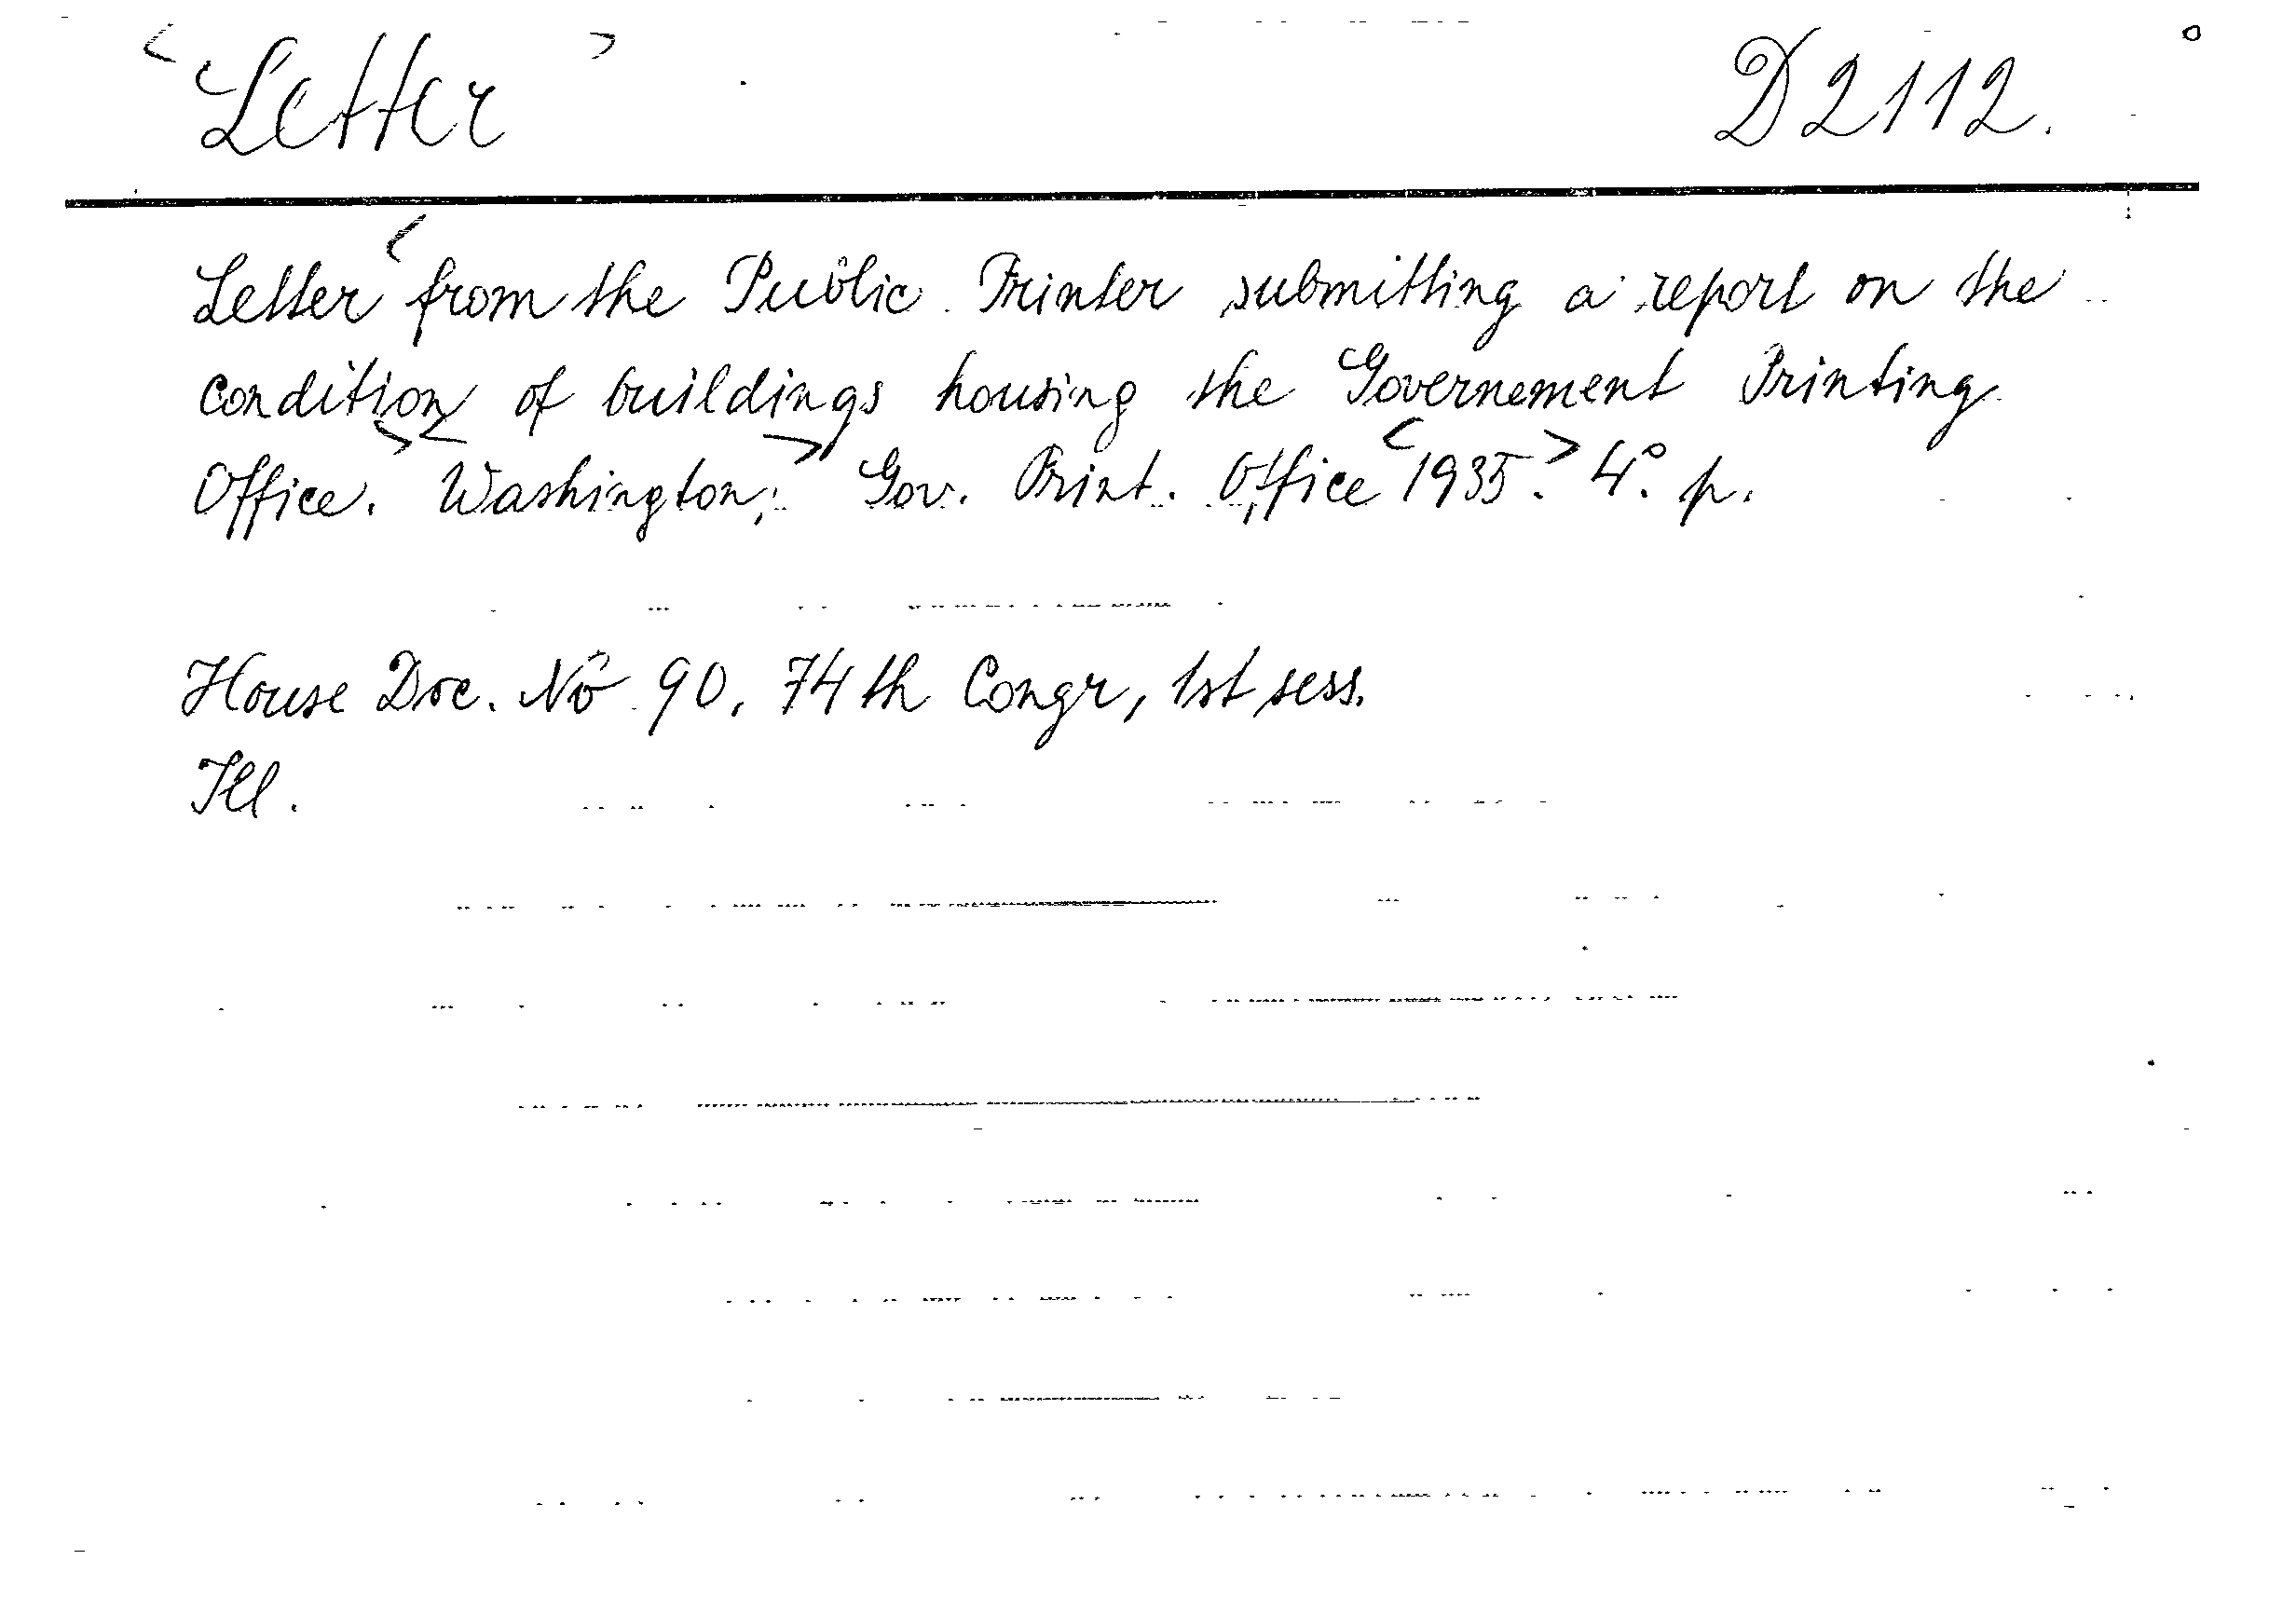 <Letter> D2112.
Letter <from the Public Printer submitting a report on the
condition of buildings housing the Governement Printing
Office.> <Washington;> Gov. Print. Office <1935.> 4° p.
House Doc. No 90, 74th Congr, 1st sess.
Ill.